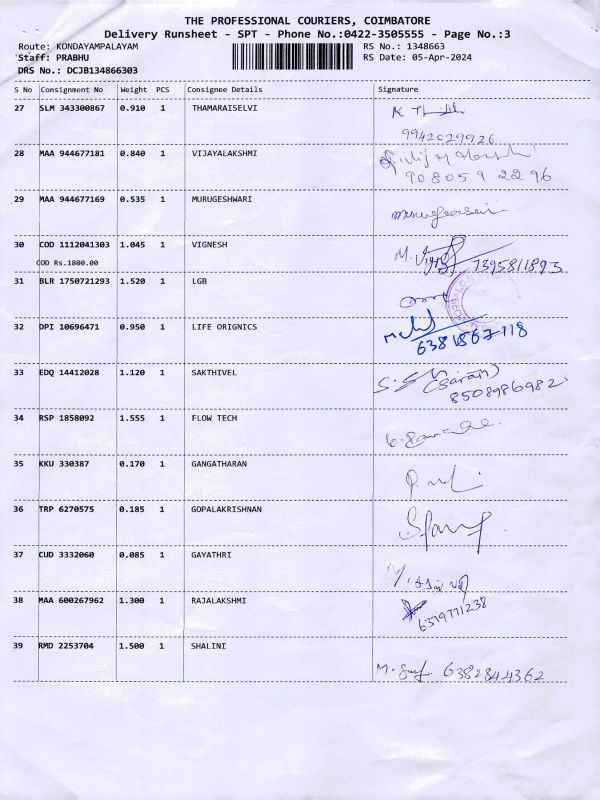 THE PROFESSIONAL COURIERS, COIMBATORE
Delivery Runsheet - SPT - Phone No.:0422-3505555 - Page No.:3
Route: KONDAYAMPALAYAM RS No.: 1348663
Staff: PRABHU RS Date: 05-Apr-2024
DRS No.: DCJB134866303
S No Consignment No Weight PCS Consignee Details Signature
27 SLM 343300867 0.910 1 THAMARAISELVI
9942029926
28 MAA 944677181 0.840 1 VIJAYALAKSHMI
908059 2296
29 MAA 944677169 0.535 1 MURUGESHWARI
30 COD 1112041303 1.045 1 VIGNESH
COD Rs.1800.00 7395811893
31 BLR 1750721293 1.520 1 LGB
32 DPI 10696471 0.950 1 LIFE ORIGNICS
33 EDQ 14412028 1.120 1 SAKTHIVEL
(Saran)
8508986982
34 RSP 1858092 1.555 1 FLOW TECH
35 KKU 330387 0.170 1 GANGATHARAN
36 TRP 6270575 0.185 1 GOPALAKRISHNAN
37 CUD 3332060 0.085 1 GAYATHRI
38 MAA 600267962 1.300 1 RAJALAKSHMI
6379771238
39 RMD 2253704 1.500 1 SHALINI
6382844362